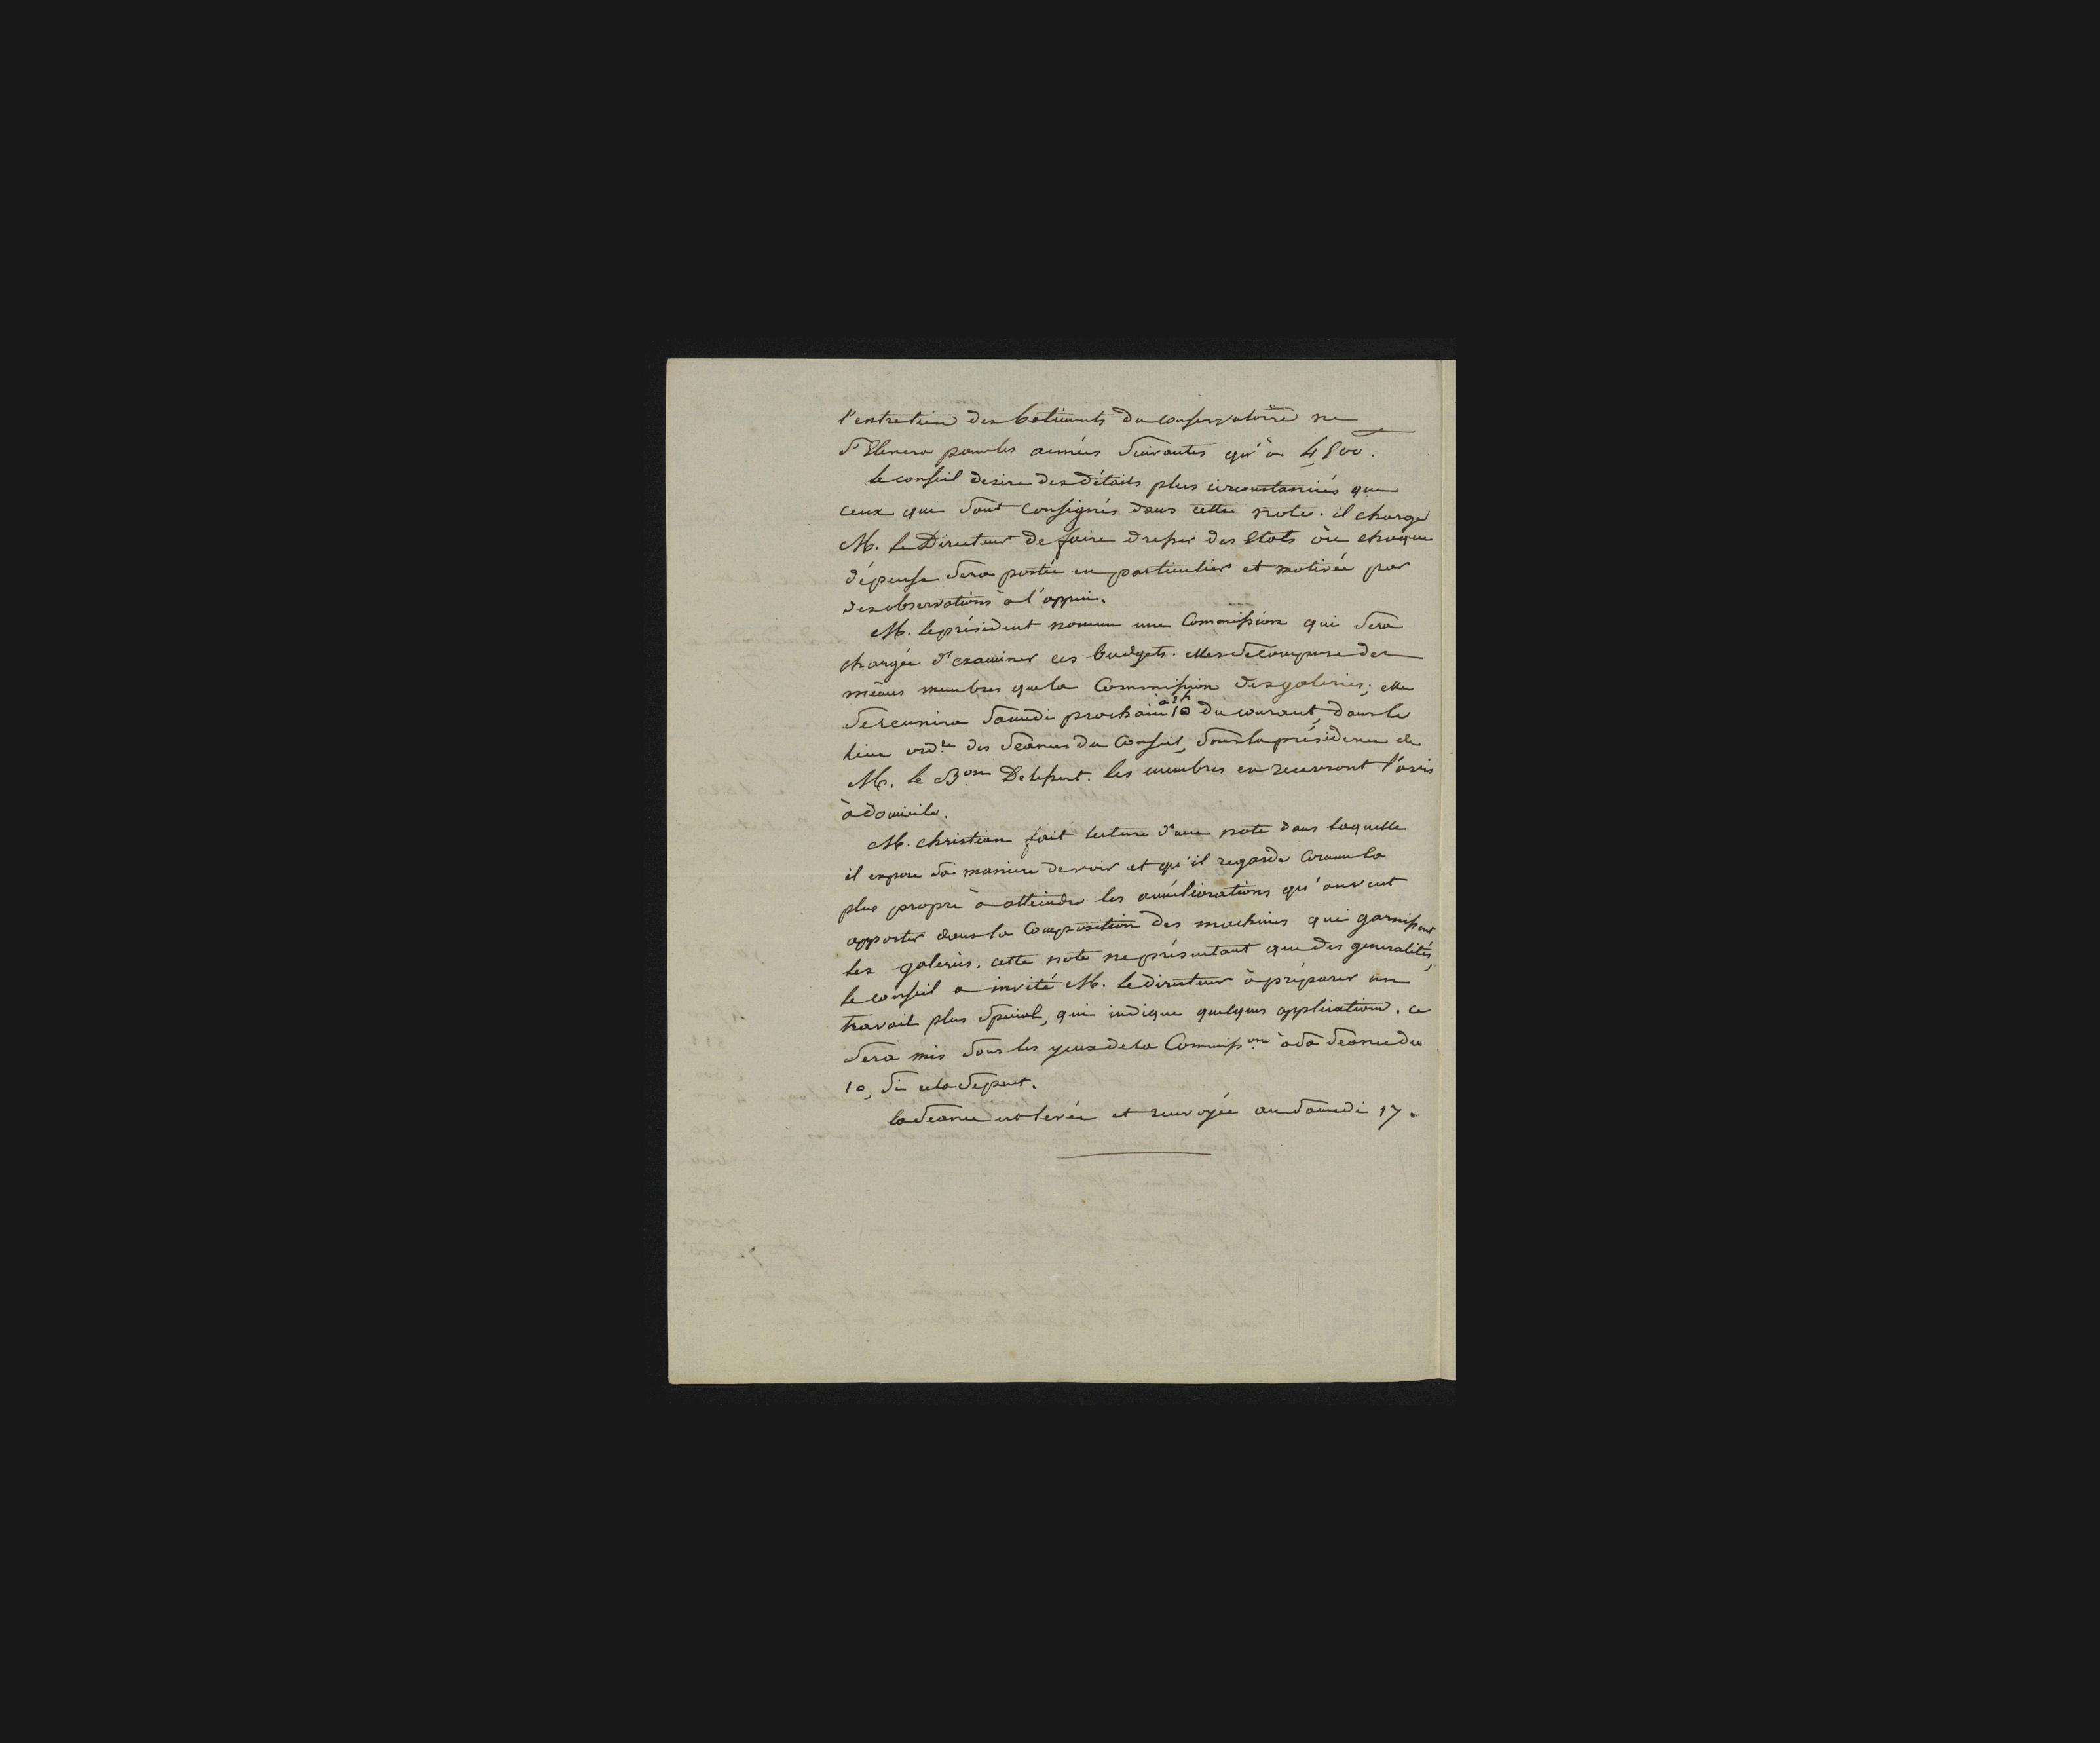 l'entretien des batiments du conservatoire ne
s'Elevera pour les années suivantes qu'à 4,500.
le conseil desire des détails plus circonstanciés que
ceux qui sont consignés dans cette note. il charge
M. le Directeur de faire dresser des Etats où chaque
dépense sera portée en particulier et motivée par
des observations à l'appui.
M. le président nomme une Commission qui sera
chargée d'examiner ces budgets. elle se compose des
mêmes membres que la Commission des galeries; elle
se reunira samedi prochain 10 du courant, dans le
lieu ord.re des séances du Conseil, sous la présidence de
M. le B.on Delessert. les membres en recevront l'avis
à domicile.
M. christian fait lecture d'une note dans laquelle
il expose sa maniere de voir et qu'il regarde comme la
plus propre à atteindre les améliorations qu'on veut
apporter dans la Composition des machines qui garnissent
les galeries. cette note ne présentant que des generalités,
le conseil a invité M. le directeur à préparer un
travail plus spécial, qui indique quelques applications. ce
sera mis sous les yeux de la Commiss.on à sa séance du
10, si cela se peut.
la séance est levée et renvoyée au samedi 17.